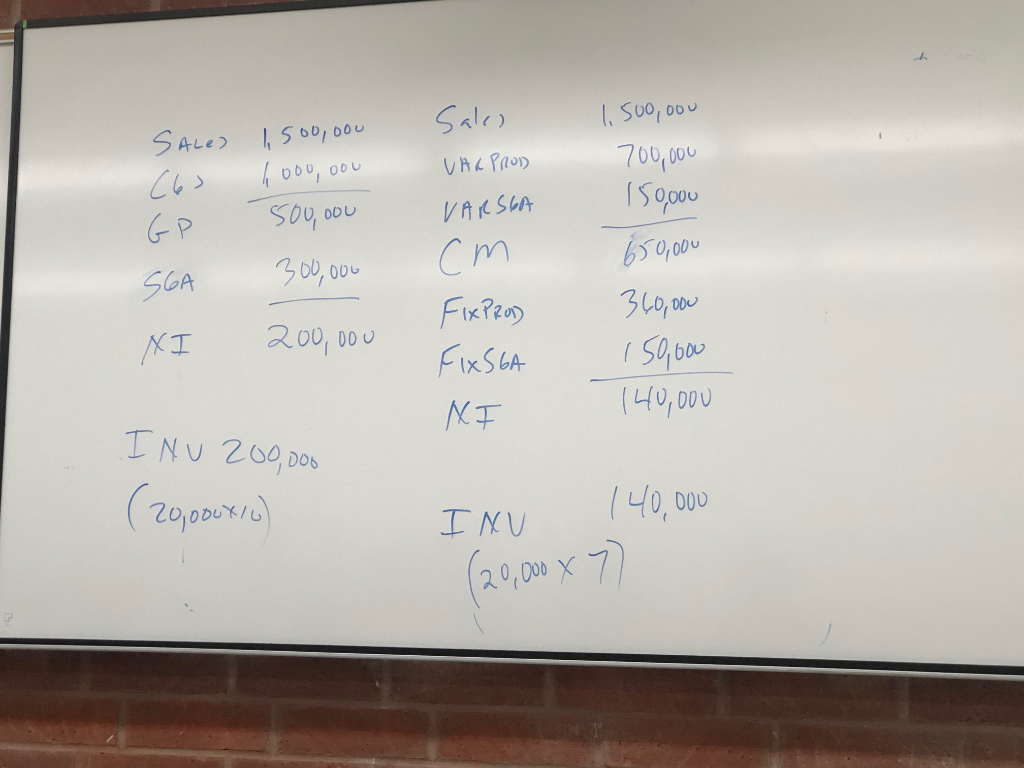 SALES 1,500,000
CGS 1,000,000
GP 500,000
SGA 300,000
NI 200,000
INV 200,000
(20,000 x 10)
Sales 1,500,000
VAR PROD 700,000
VAR SGA 150,000
CM 650,000
FIX PROD 360,000
FIX SGA 150,000
NI 140,000
INV 140,000
(20,000 x 7)